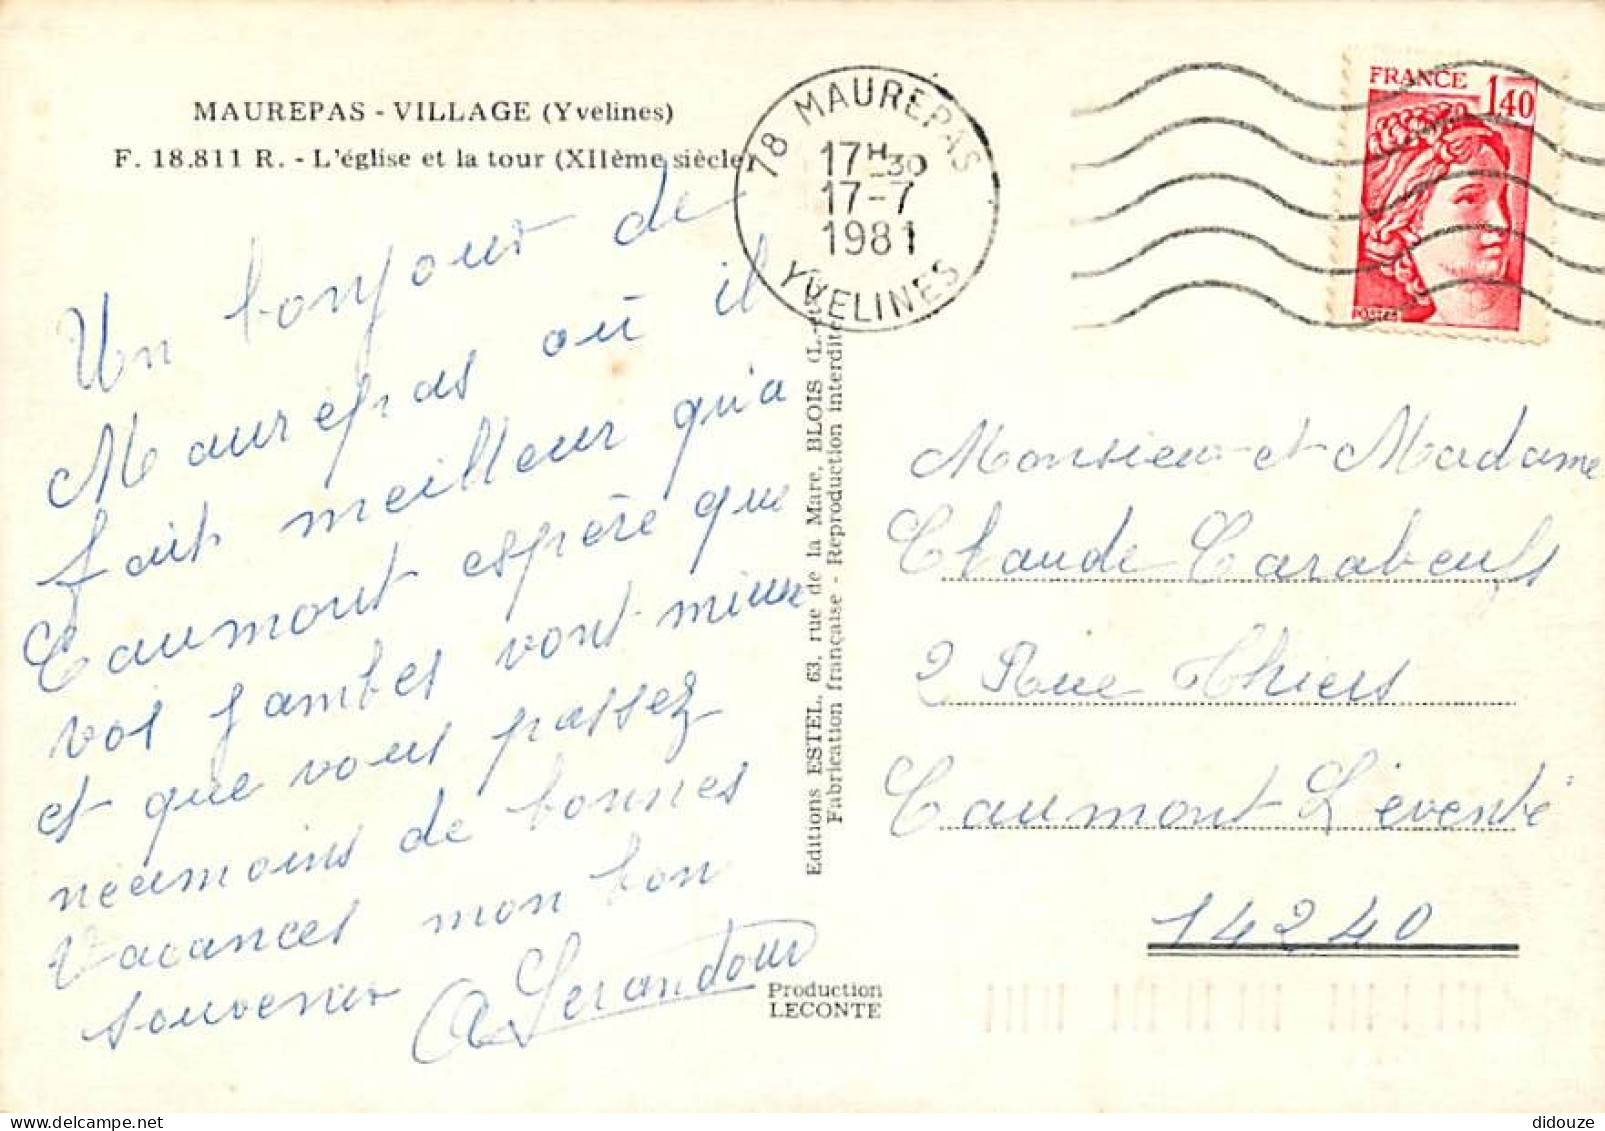 MAUREPAS - VILLAGE (Yvelines)
F. 18.811 R. - L'église et la tour (XIIème siècle)
78 MAUREPAS
17H30
17-7
1981
YVELINES
FRANCE
1,40
POSTES
Un bonjour de
Maurepas où il
fait meilleur qu'à
Caumont espère que
vos jambes vont mieux
et que vous passez
néenmoins de bonnes
vacances mon bon
souvenir
Editions ESTEL, 63, rue de la Mare, BLOIS
Fabrication française - Reproduction interdite
Production
LECONTE
Monsieur et Madame
Claude Carabeufs
2 Rue Thiers
Caumont L'éventé
14240
didouze